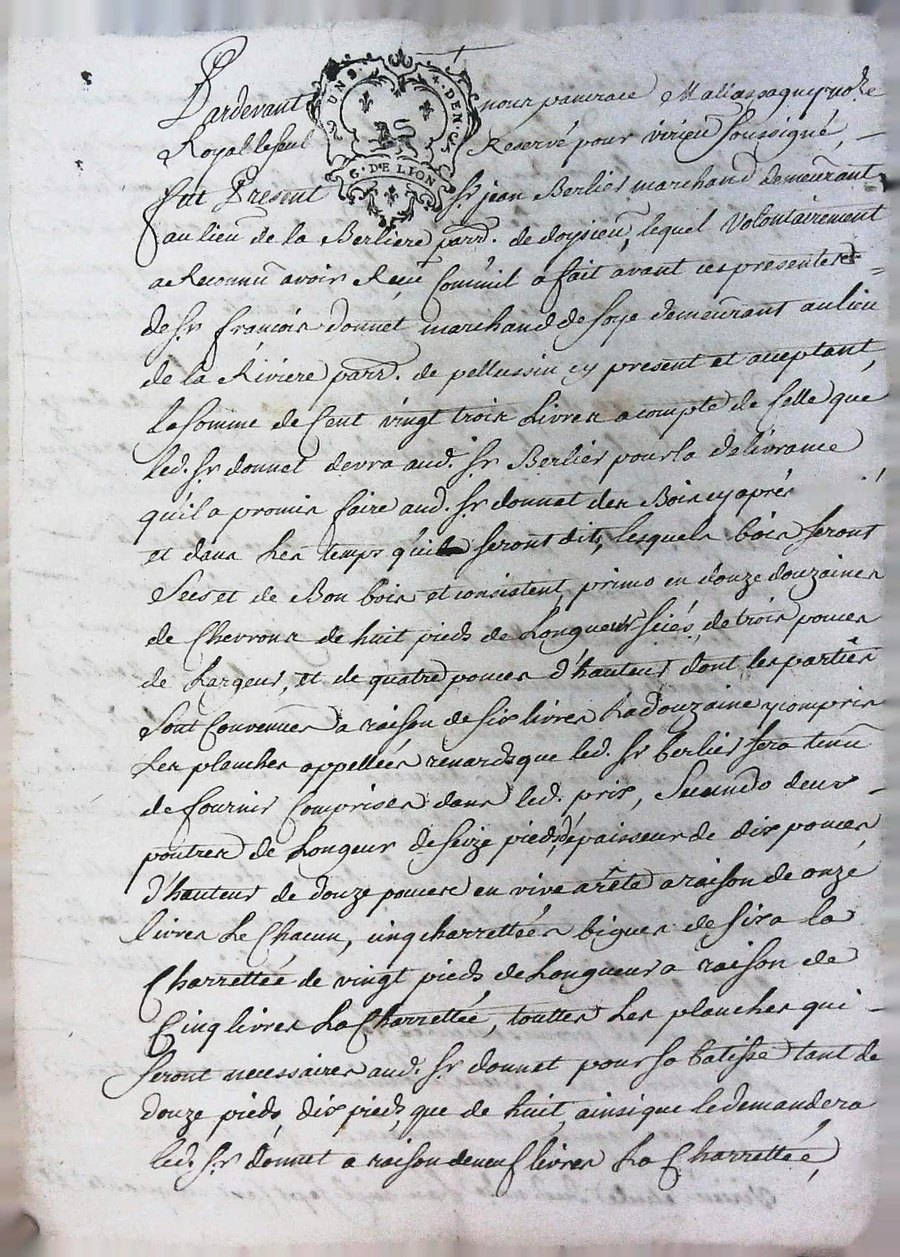 UN S. 4. DEN.
G. DE LION
Pardevant nous pancrace Maliassagny no.re
Royal le seul Reservé pour virieu soussigné,
fut Present Sr jean Berlier marchand demeurant
au lieu de la Berliere parr. de doysieu, lequel volontairement
a Reconnu avoir Reçu comm'il a fait avant ces presentes
de Sr françois donnet marchand de soye demeurant au lieu
de la Riviere parr. de pellussin cy present et acceptant,
la somme de Cent vingt trois Livres a compte de celle que
led. Sr donnet devra aud. Sr Berlier pour la delivrance
qu'il a promis faire aud. Sr donnet des Bois cy aprés
et dans les temps qu'il seront dits, lesquels bois seront
secs et de Bon bois et consistent primo en douze douzaines
de Chevrons de huit pieds de Longueur sciés, de trois pouces
de Largeur, et de quatre pouces d'hauteur dont les parties
sont convenues a raison de six livres La douzaine y compris
Les planches appellées renards que led. Sr berlier sera tenu
de fournir comprises dans led. prix, Secundo deux
poutres de Longeur de seize pieds, d'épaisseur de dix pouces
d'hauteur de douze pouces en vive arête a raison de onze
livres Le Chacun, cinq charrettées bigues de six a la
Charrettée de vingt pieds de Longueur a raison de
Cinq livres La Charrettée, touttes Les planches qui
seront necessaires aud. Sr donnet pour sa batisse tant de
douze pieds, dix pieds, que de huit, ainsi que le demandera
led. Sr donnet a raison de neuf livres La Charrettée,